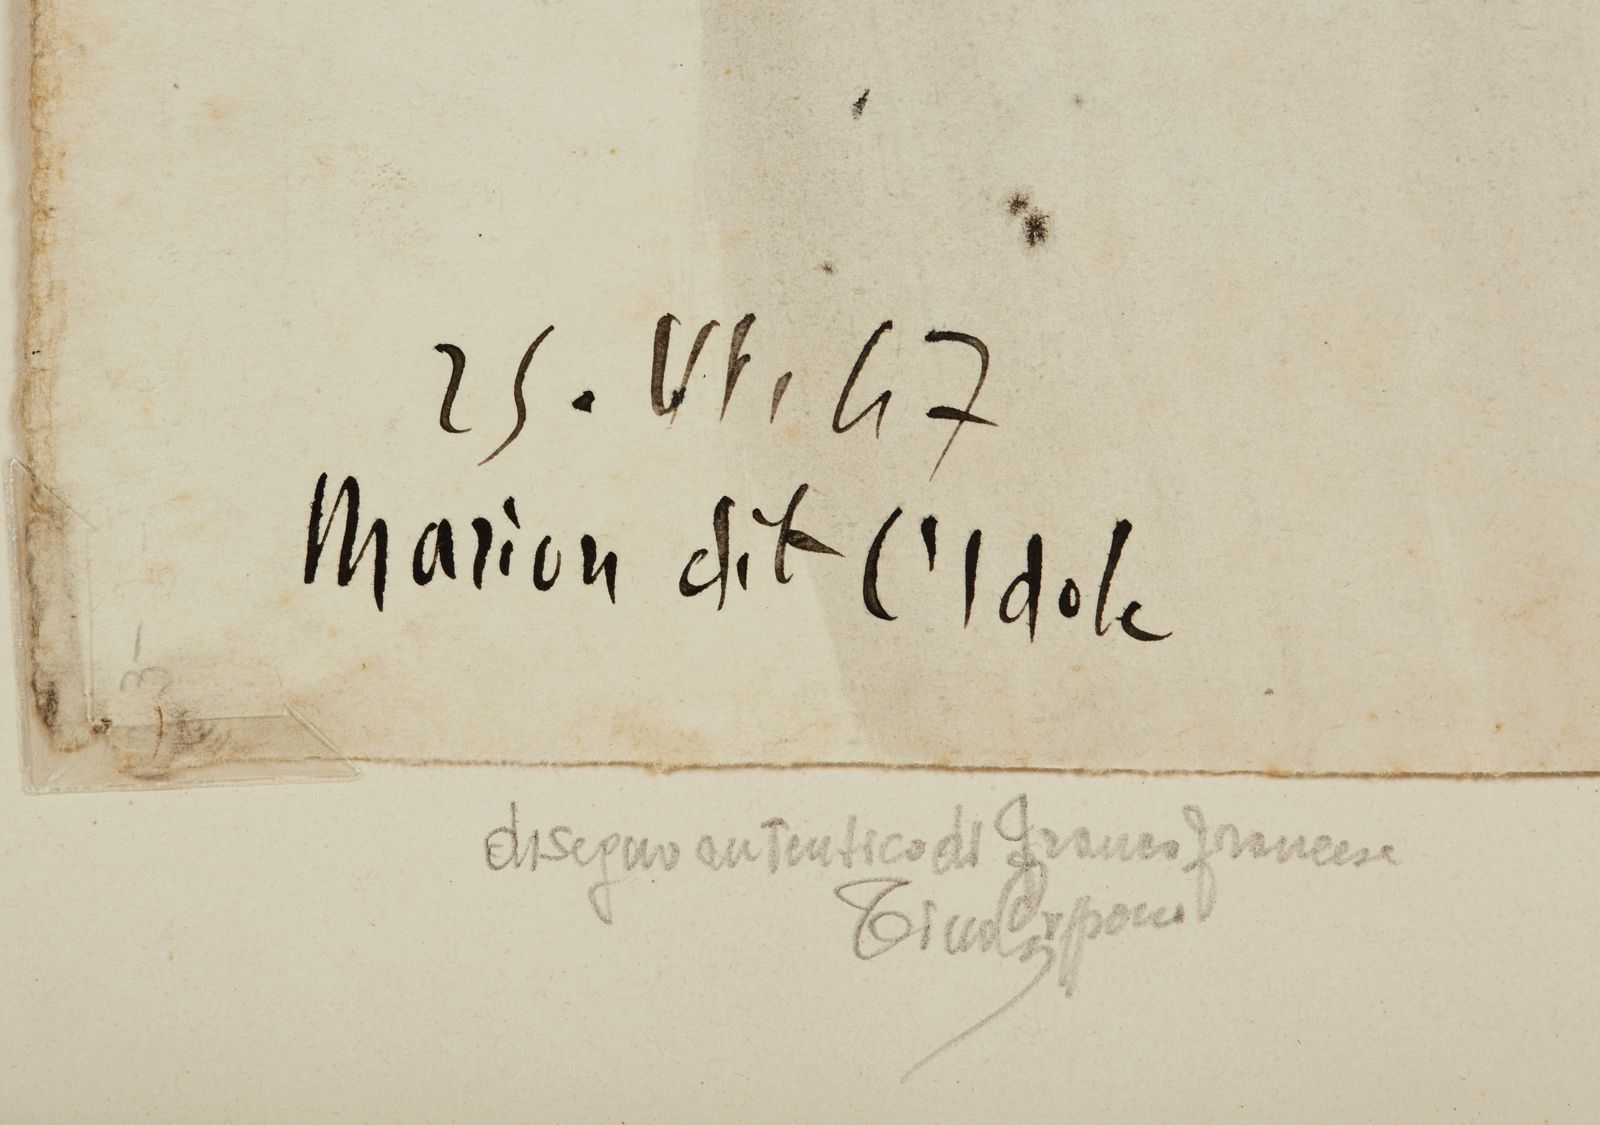 25. VI. 47
Marion dit l'Idole
disegno autentico di Franco Francese
Tino